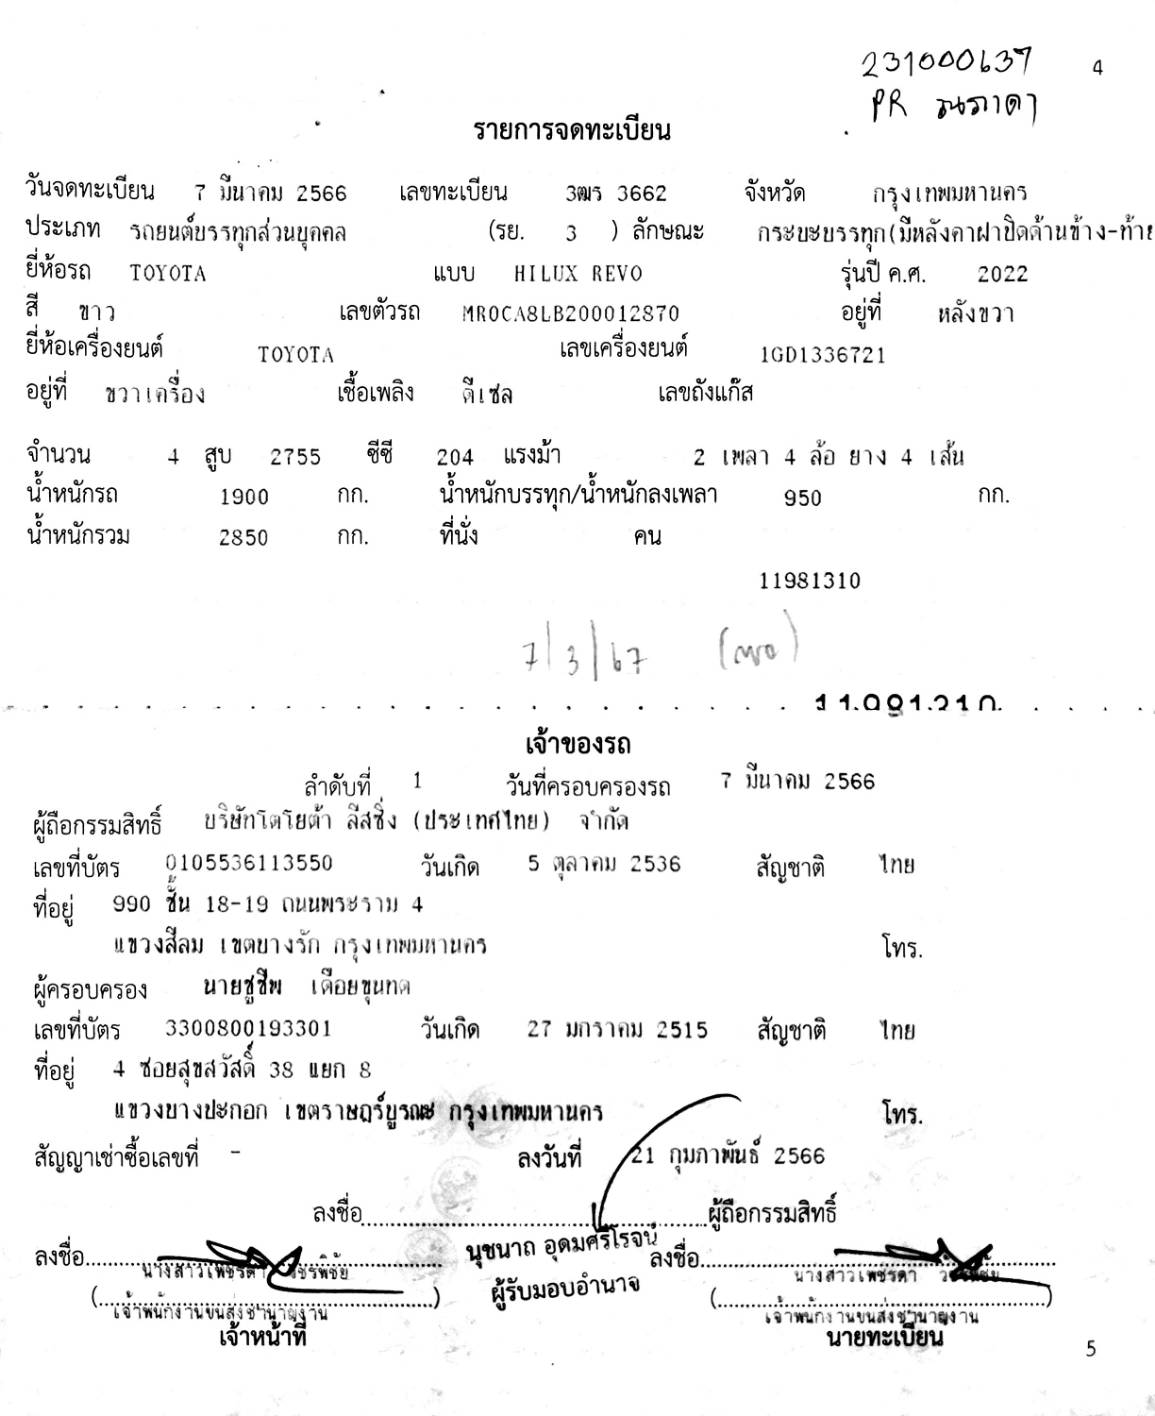 231000637
4
PR
รายการจดทะเบียน
วันจดทะเบียน 7 มีนาคม 2566 เลขทะเบียน 3ฒร 3662 จังหวัด กรุงเทพมหานคร
ประเภท รถยนต์บรรทุกส่วนบุคคล (รย. 3 ) ลักษณะ กระบะบรรทุก(มีหลังคาฝาปิดด้านข้าง-ท้าย
ยี่ห้อรถ TOYOTA แบบ HILUX REVO รุ่นปี ค.ศ. 2022
สี ขาว เลขตัวรถ MR0CA8LB200012870 อยู่ที่ หลังขวา
ยี่ห้อเครื่องยนต์ TOYOTA เลขเครื่องยนต์ 1GD1336721
อยู่ที่ ขวาเครื่อง เชื้อเพลิง ดีเซล เลขถังแก๊ส
จำนวน 4 สูบ 2755 ซีซี 204 แรงม้า 2 เพลา 4 ล้อ ยาง 4 เส้น
น้ำหนักรถ 1900 กก. น้ำหนักบรรทุก/น้ำหนักลงเพลา 950 กก.
น้ำหนักรวม 2850 กก. ที่นั่ง คน
11981310
7/3/67
11981310
เจ้าของรถ
ลำดับที่ 1 วันที่ครอบครองรถ 7 มีนาคม 2566
ผู้ถือกรรมสิทธิ์ บริษัทโตโยต้า ลีสซิ่ง (ประเทศไทย) จำกัด
เลขที่บัตร 0105536113550 วันเกิด 5 ตุลาคม 2536 สัญชาติ ไทย
ที่อยู่ 990 ชั้น 18-19 ถนนพระราม 4
แขวงสีลม เขตบางรัก กรุงเทพมหานคร โทร.
ผู้ครอบครอง นายชูชีพ เดือยขุนทด
เลขที่บัตร 3300800193301 วันเกิด 27 มกราคม 2515 สัญชาติ ไทย
ที่อยู่ 4 ซอยสุขสวัสดิ์ 38 แยก 8
แขวงบางปะกอก เขตราษฎร์บูรณะ กรุงเทพมหานคร โทร.
สัญญาเช่าซื้อเลขที่ - ลงวันที่ 21 กุมภาพันธ์ 2566
ลงชื่อ ผู้ถือกรรมสิทธิ์
นุชนาถ อุดมศรีโรจน์
ลงชื่อ ลงชื่อ
นางสาวเพชรดา วชรพิชัย นางสาวเพชรดา
ผู้รับมอบอำนาจ
( ) ( )
เจ้าพนักงานขนส่งชำนาญงาน เจ้าพนักงานขนส่งชำนาญงาน
เจ้าหน้าที่ นายทะเบียน
5